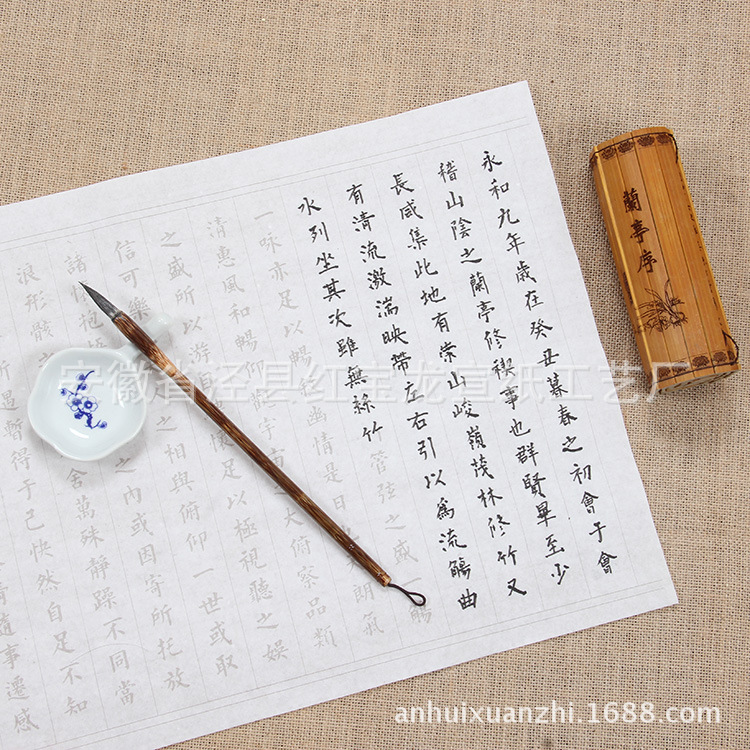 永和九年歲在癸丑暮春之初會于會
稽山陰之蘭亭修禊事也群賢畢至少
長咸集此地有崇山峻嶺茂林修竹又
有清流激湍映帶左右引以為流觴曲
水列坐其次雖無絲竹管弦之盛一觴
一咏亦足以暢幽情是日朗氣
清惠風和暢仰宙之大俯察品類
之盛所以游足以極視聽之娛
信可樂之相與俯仰一世或取
諸懷抱之內或因寄所托放
浪形骸舍萬殊靜躁不同當
所遇暫得于己快然自足不知
隨事遷感
蘭亭序
安徽省泾县红宝龙宣纸工艺厂
anhuixuanzhi.1688.com